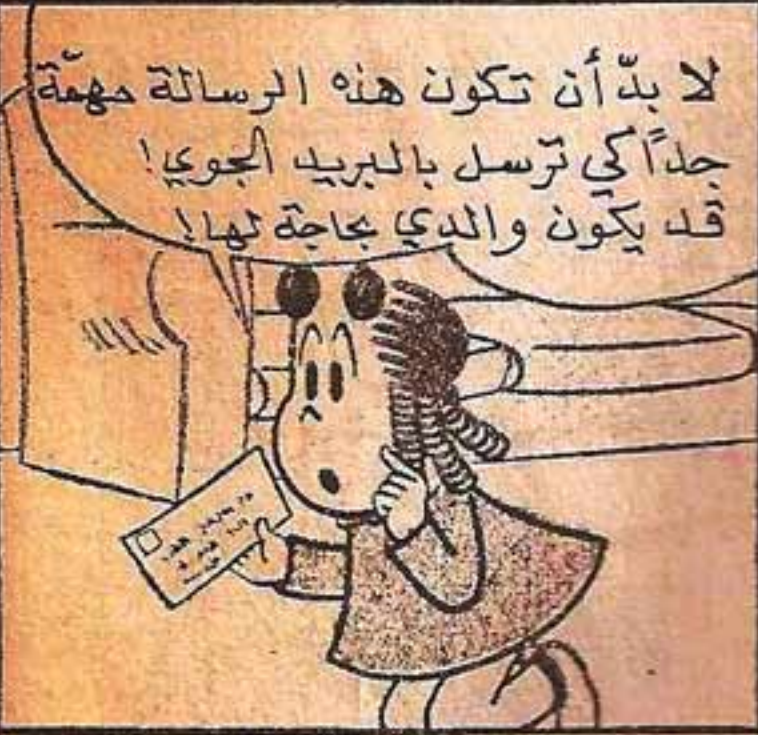 لا بدّ أن تكون هذه الرسالة مهمّة
جداً كي ترسل بالبريد الجوي!
قد يكون والدي بحاجة لها!